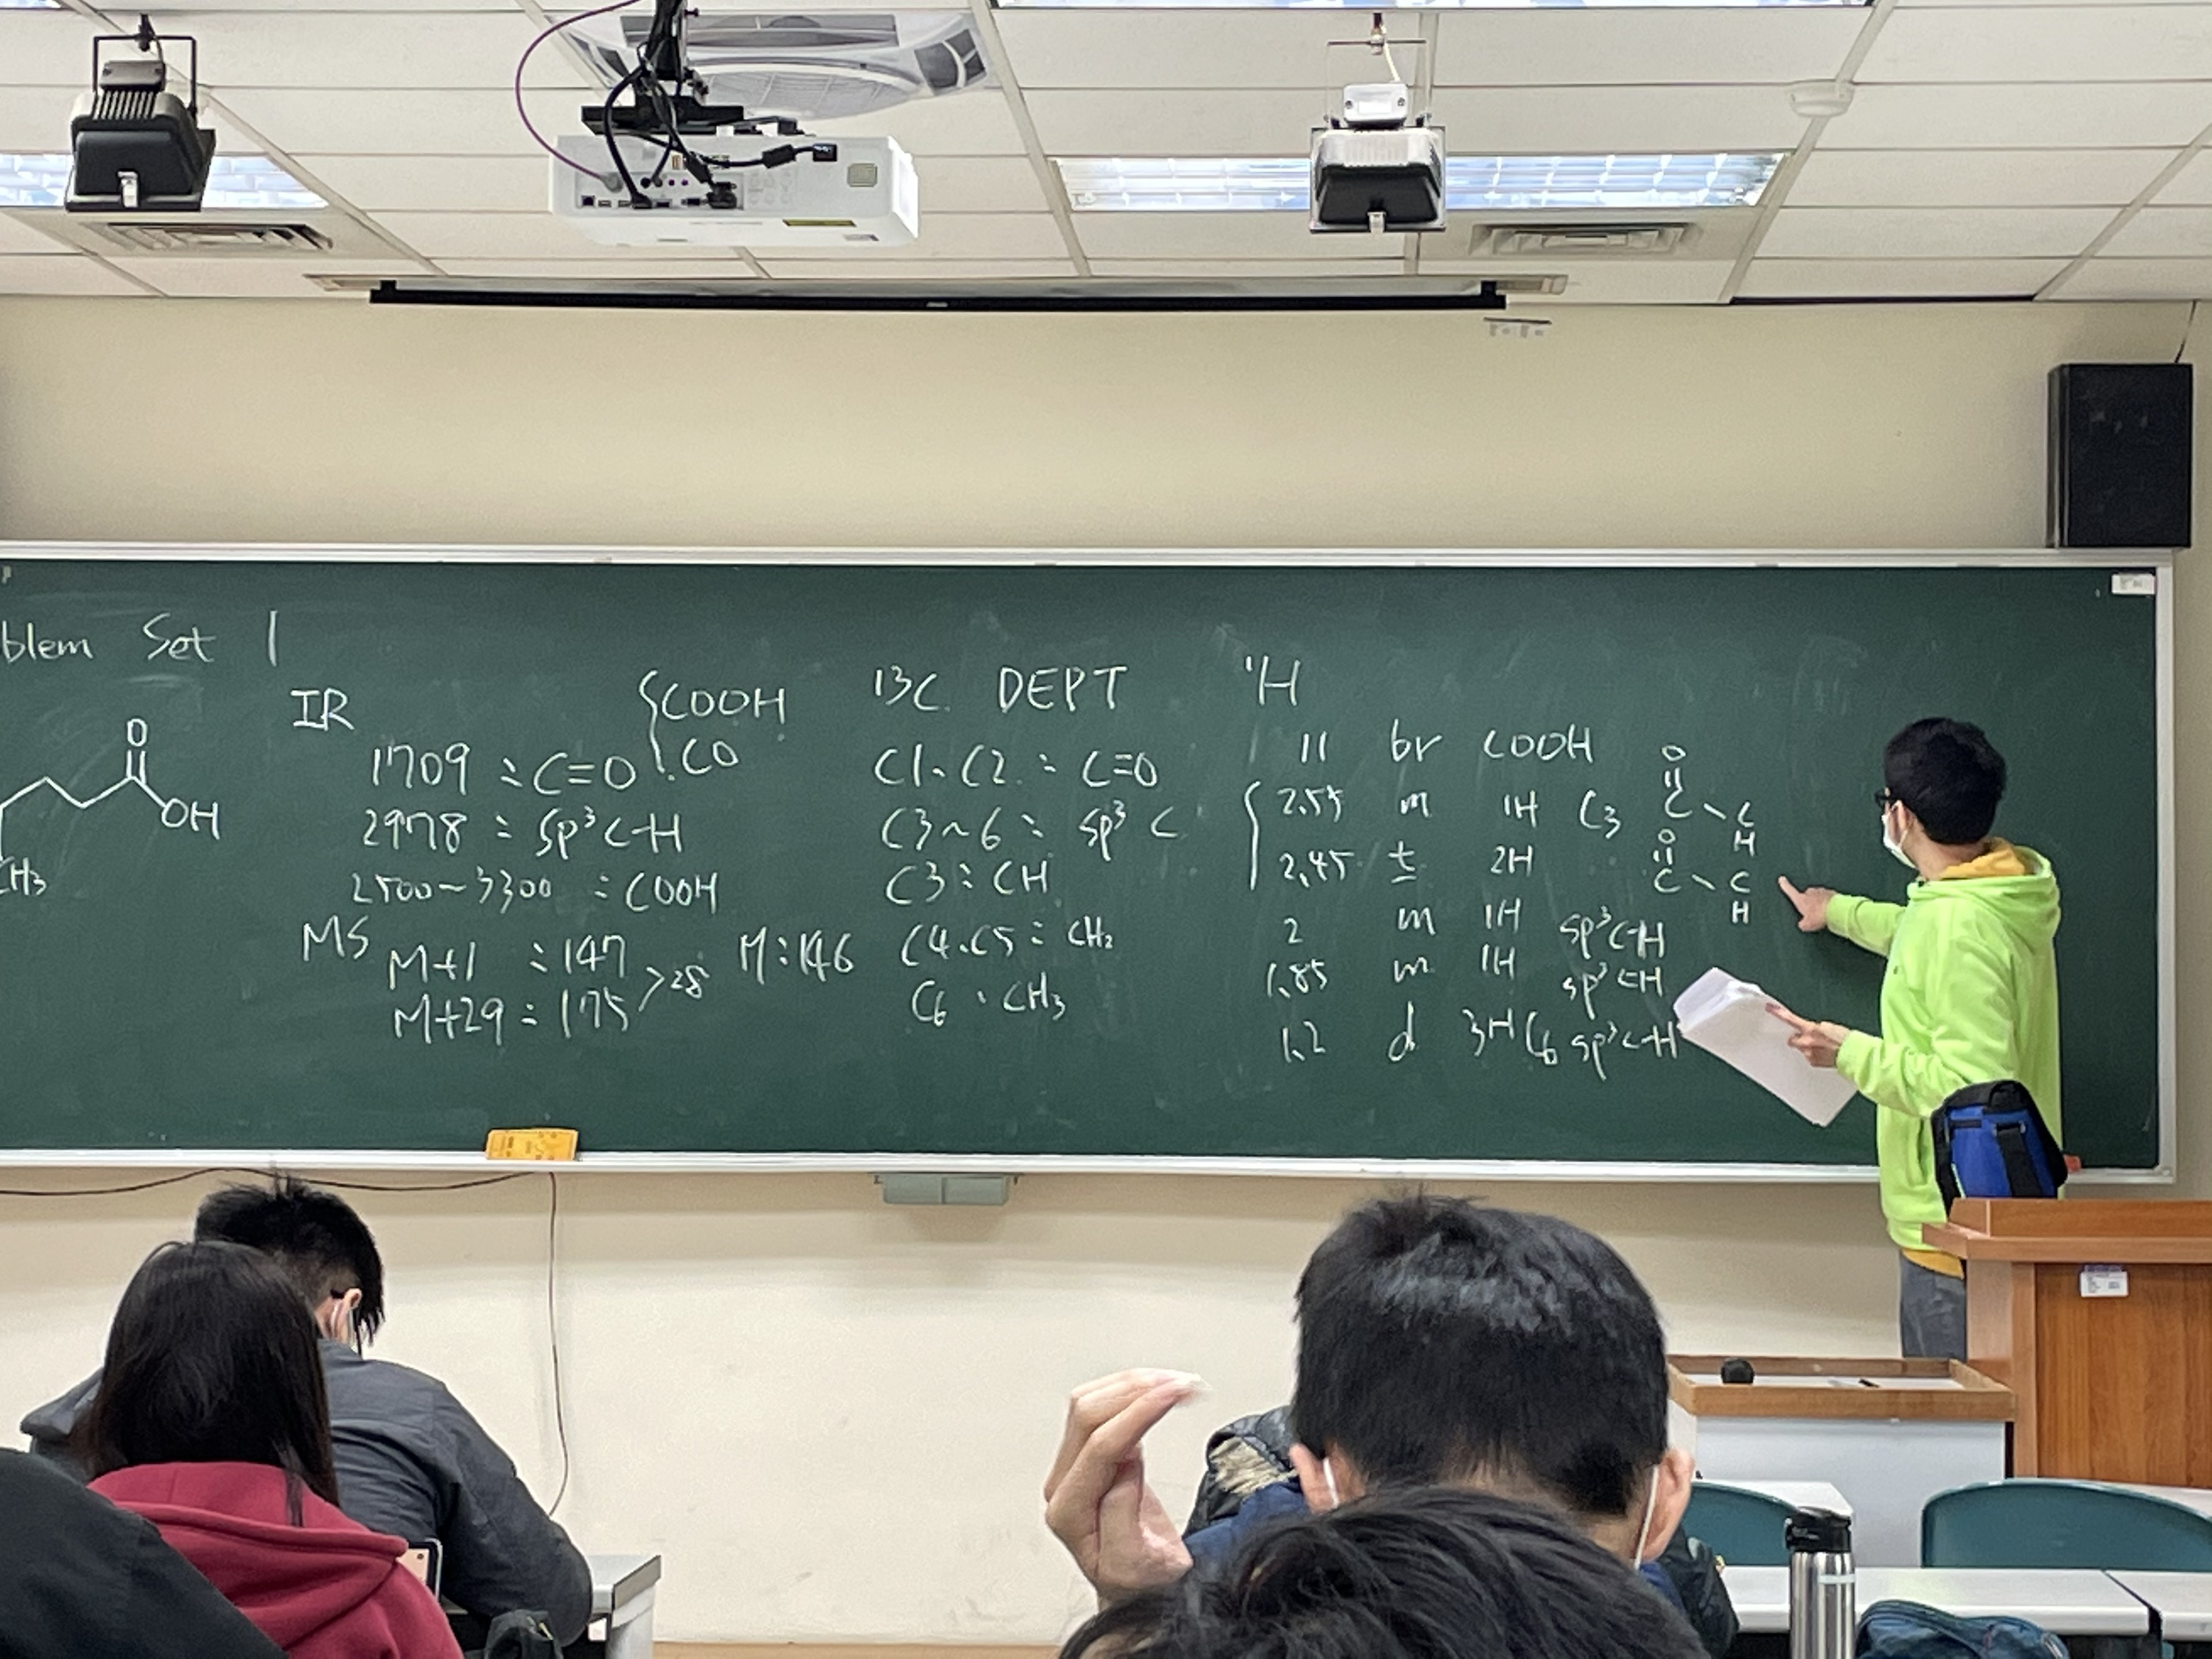 blem Set 1
O
OH
CH3
IR
1709 : C=O { COOH
CO
2978 : sp³ C-H
2500~3300 : COOH
MS
M+1 : 147
M+29 : 175
>28
M : 146
13C DEPT
C1、C2 : C=O
C3~6 : sp³ C
C3 : CH
C4、C5 : CH₂
C6 : CH₃
¹H
11 br COOH
2.55 m 1H C3
O
C
C
H
2.45 t 2H
O
C
C
H
2 m 1H sp³C-H
1.85 m 1H sp³C-H
1.2 d 3H C6 sp³C-H